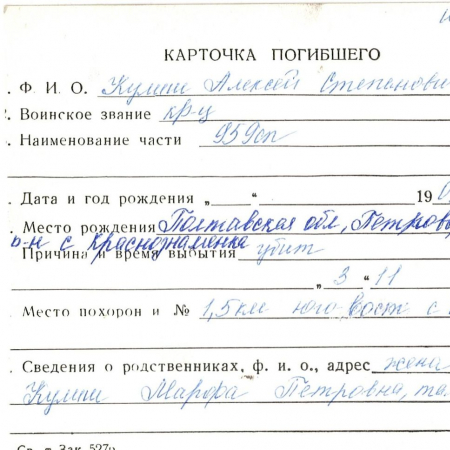 КАРТОЧКА ПОГИБШЕГО
. Ф. И. О. Алексей Степанови
. Воинское звание кр-ц
. Наименование части 959сп
. Дата и год рождения „ “ 190
. Место рождения Полтавская обл, Петров
р-н с Краснознаменка
Причина и время выбытия убит
„ 3 “ 11
. Место похорон и № 1,5км юго-вост с
. Сведения о родственниках, ф. и. о., адрес жена
Марфа Петровна, та
Зак. 527о